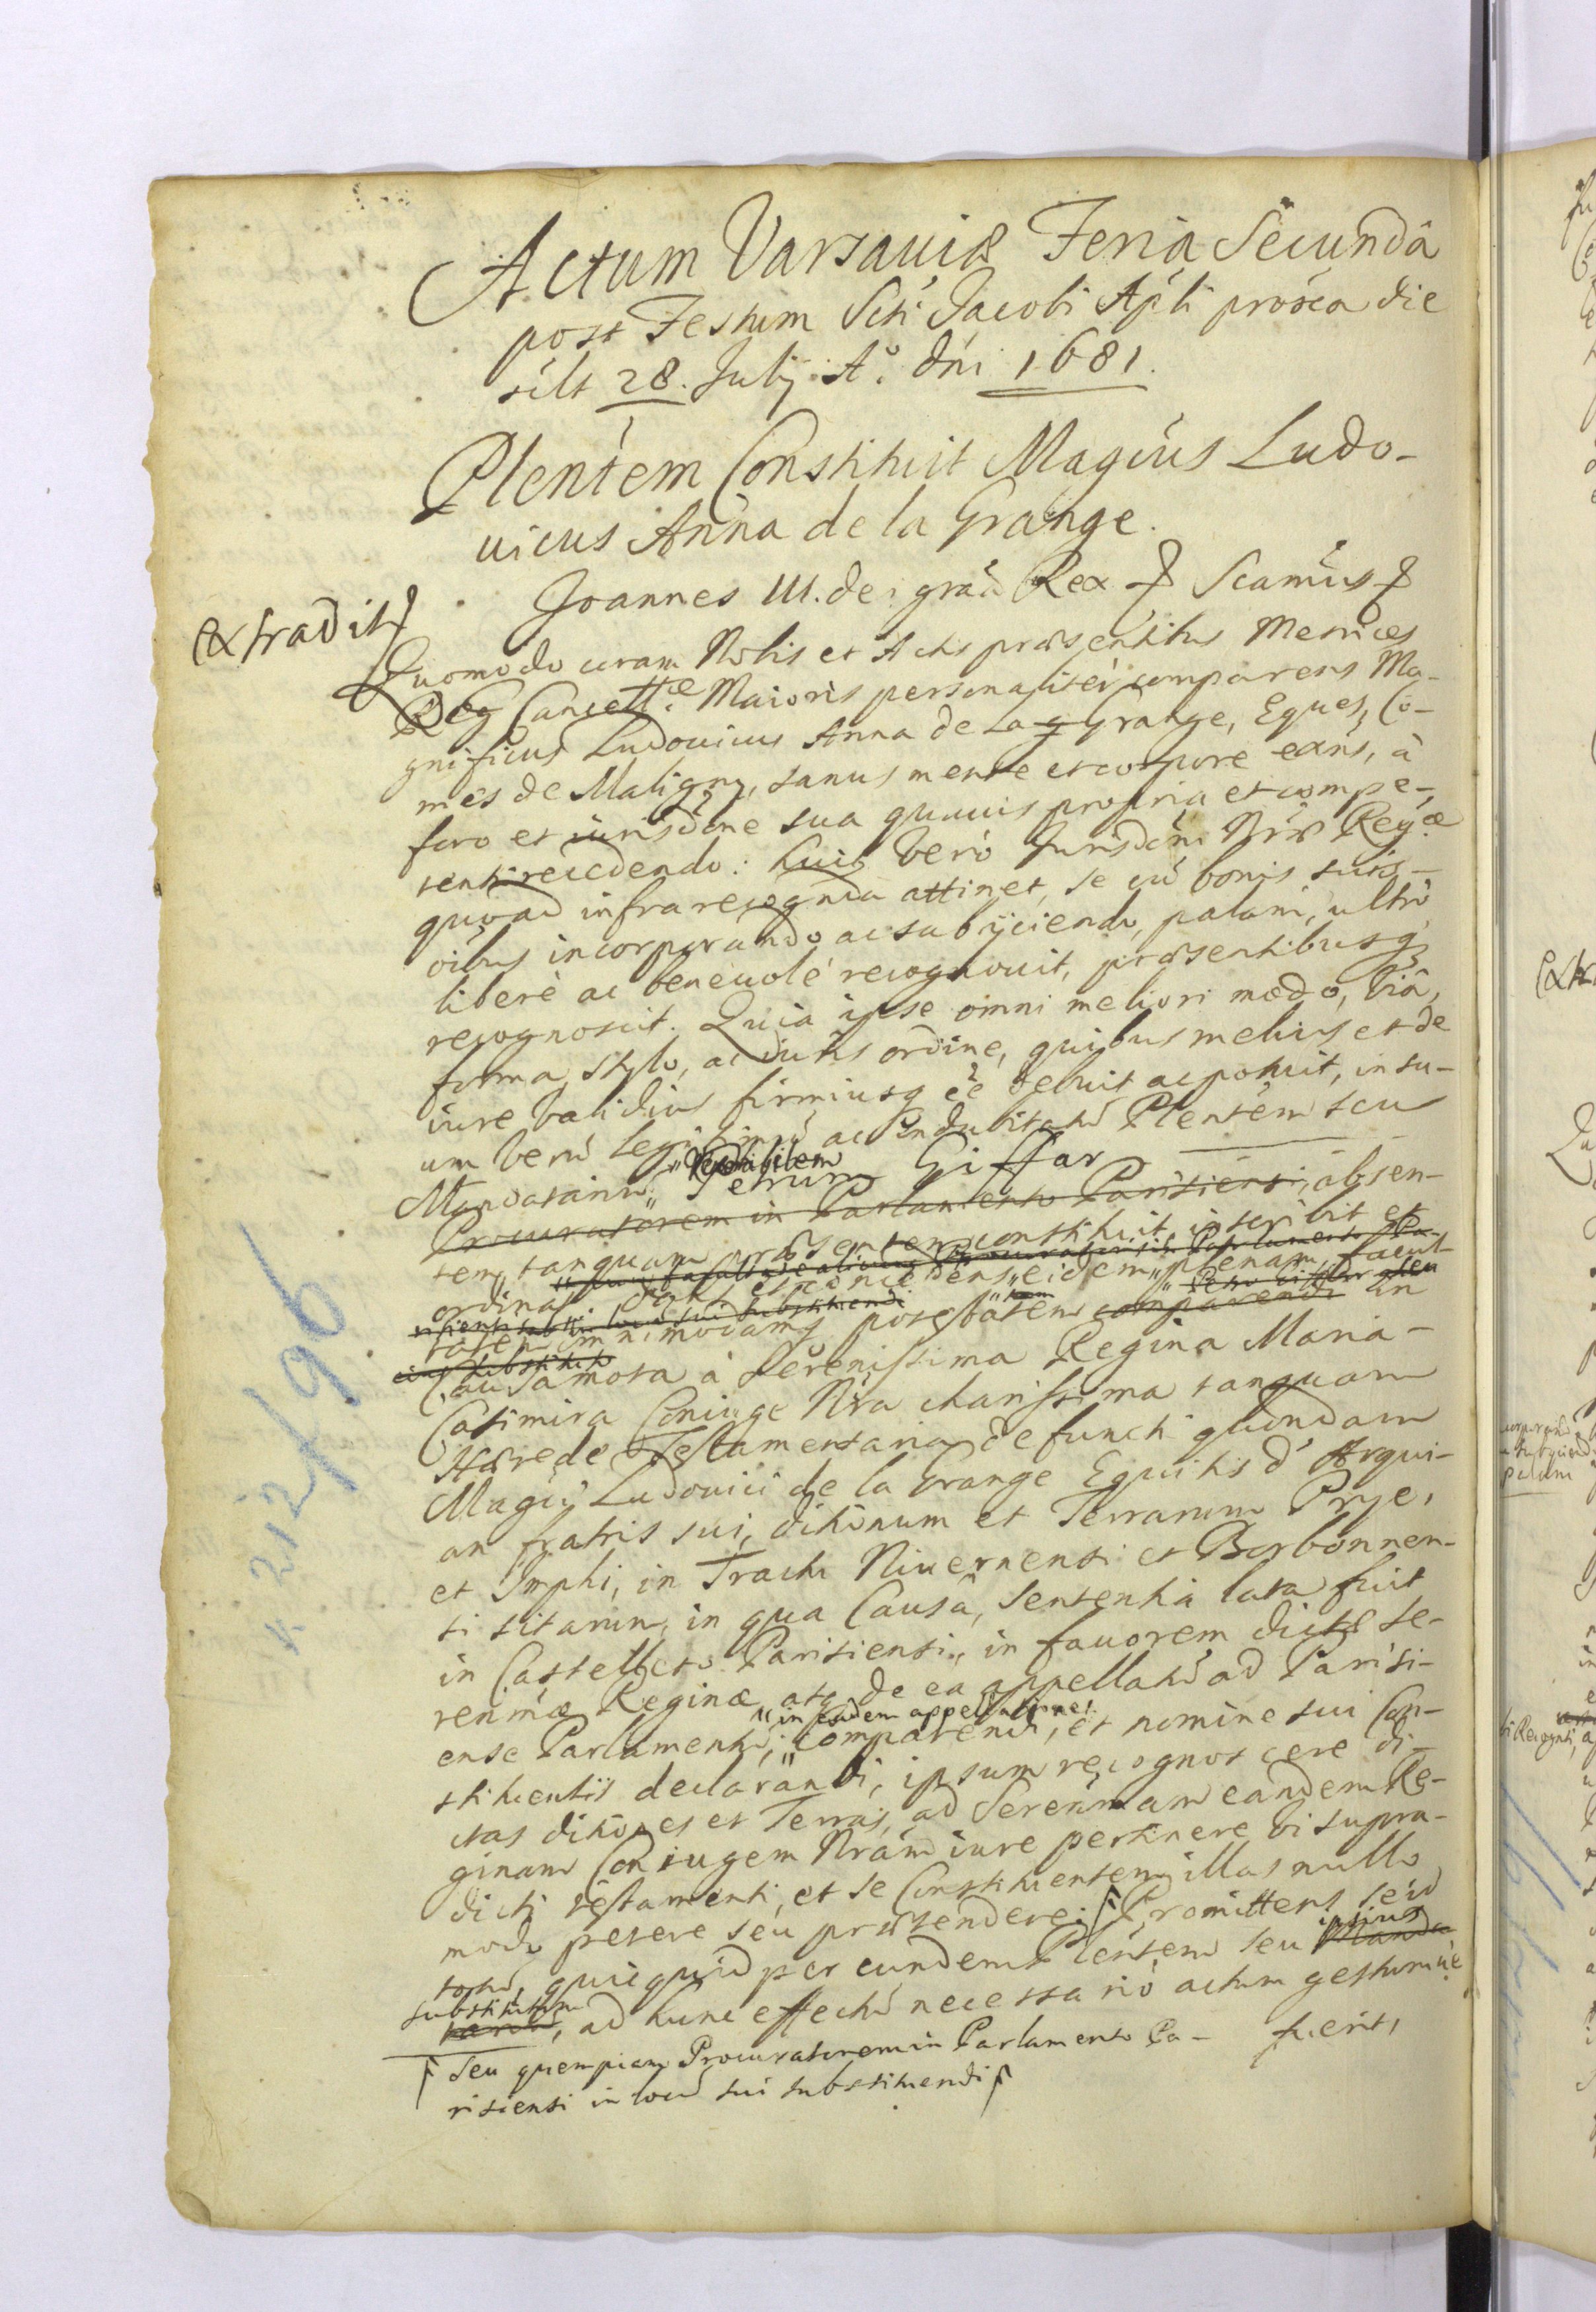 Actum Varsaviæ Feria Secunda
post Festum Scti Jacobi Apli proxa die
silt 28. Julij A.° dni 1681.
Plentem Constituit Magcus Ludo-
uicus Anna de la Grange.
Joannes III. dei gra Rex Scamus
Extradit
Quomodo coram Nobis et Actis præsentibus Metrices
Reg Cancell.æ Maioris personaliter comparens Ma-
gnificus Ludouicus Anna de La g Grange, Eques, Co-
mes de Maligny, sanus mente et corpore exns, à
foro et iurisdone sua quauis propria et compe-
tenti recedendo: huic vero Jurisdoni Nræ Reg.æ
quoad infra recognda attinet, se cu bonis suis
oibus incorporando ac subijciendo, palam, ultro
liberè ac beneuolè recognouit, præsentibusq
recognoscit. Quia ipse omni meliori modo, viâ,
forma, stylo, ac iuris ordine, quibus melius et de
iure validius firmiusq ee debuit ac potuit, in su-
um veru legitimu ac indubitatu Plentem seu
Mandatariu, Petrum Giffar
Procuratorem in Parlamento Parisiensi, absen-
tem tanquam præsentem constituit, inscribit et
ordinat. dans et concedens eidem plenam facul-
risiensi in locu sui substituendi
tatem omnimodamq potestatem comparendi in
eius substituto
Causa mota à Serenissima Regina Maria
Casimira Coniuge Nra charissima tanquam
Hærede Testamentaria defuncti quondam
Magci Ludouici de la Grange Equitis d' Arqui-
an fratris sui, ditionum et Terrarum Prye,
et Imphi, in Tractu Niuernensi et Borbonnen-
si sitarum, in qua Causâ, Sententia lata fuit
in Castelleto Parisiensi, in fauorem dictæ Se-
renmæ Reginæ, atq de ea appellatu ad Parisi-
in eadem appellatione
ense Parlamentu; comparendi, et nomine sui Con-
stituentis declarandi, ipsum recognoscere di-
ctas ditiones et Terras, ad Serenmam eandem Re-
ginam Consugem Nram iure pertinere vi supra-
dicti testamenti, et se Constituentem illas nullo
modo petere seu prætendere: Promittens se id
ipsius
totu, quicquid per eundem Plentem seu Manda
substitutum
tariu, ad hunc effectu necessario actum gestumue
fuerit,
Seu quempiam Procuratorem in Parlamento Pa-
risiensi in locu sui substituendi